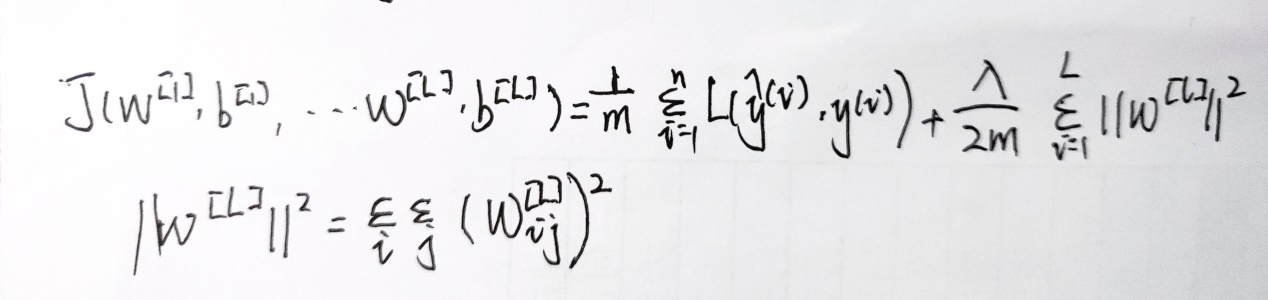 J(w^{[1]}, b^{[1]}, ... w^{[L]}, b^{[L]}) = \frac{1}{m} \sum_{i=1}^{n} L(\hat{y}^{(i)}, y^{(i)}) + \frac{\lambda}{2m} \sum_{i=1}^{L} ||w^{[L]}||^2
||w^{[L]}||^2 = \sum_{i} \sum_{j} (w_{ij}^{[L]})^2